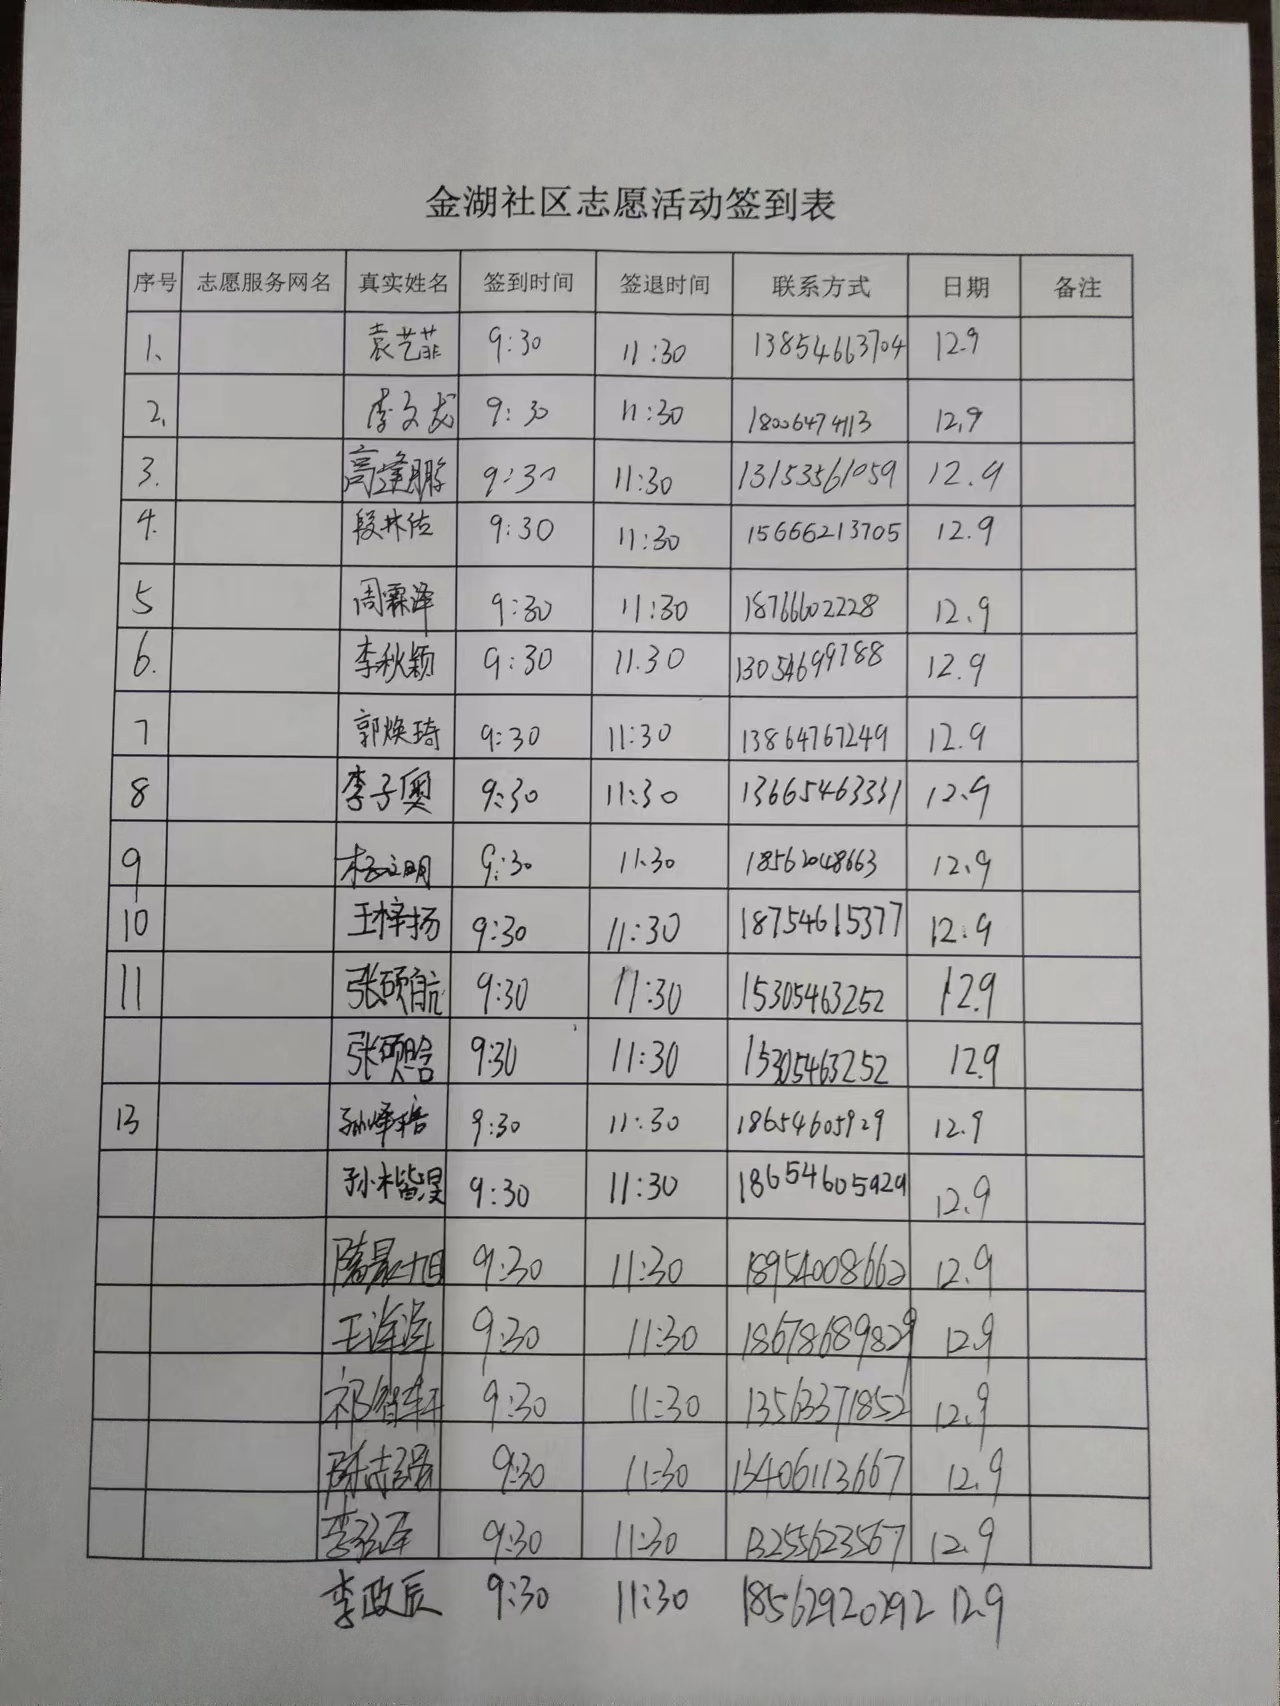 金湖社区志愿活动签到表
序号 志愿服务网名 真实姓名 签到时间 签退时间 联系方式 日期 备注
1、 袁艺菲 9:30 11:30 13854663704 12.9
2、 李文龙 9:30 11:30 18006474113 12.9
3. 高逢鹏 9:30 11:30 13153561059 12.9
4. 段林佐 9:30 11:30 15666213705 12.9
5 周霖泽 9:30 11:30 18766602228 12.9
6. 李秋颖 9:30 11.30 13054699788 12.9
7 郭焕琦 9:30 11:30 13864767249 12.9
8 李子奥 9:30 11:30 13665463331 12.9
9 杨文明 9:30 11:30 18562048663 12.9
10 王梓扬 9:30 11:30 18754615377 12.9
11 张硕航 9:30 11:30 15305463252 12.9
张硕晗 9:30 11:30 15305463252 12.9
13 9:30 11:30 18654605929 12.9
9:30 11:30 18654605929 12.9
隋晨旭 9:30 11:30 18954008662 12.9
9:30 11:30 18678689829 12.9
祁智轩 9:30 11:30 13563371852 12.9
陈志强 9:30 11:30 13406113667 12.9
9:30 11:30 13255623567 12.9
李政辰 9:30 11:30 18562920292 12.9